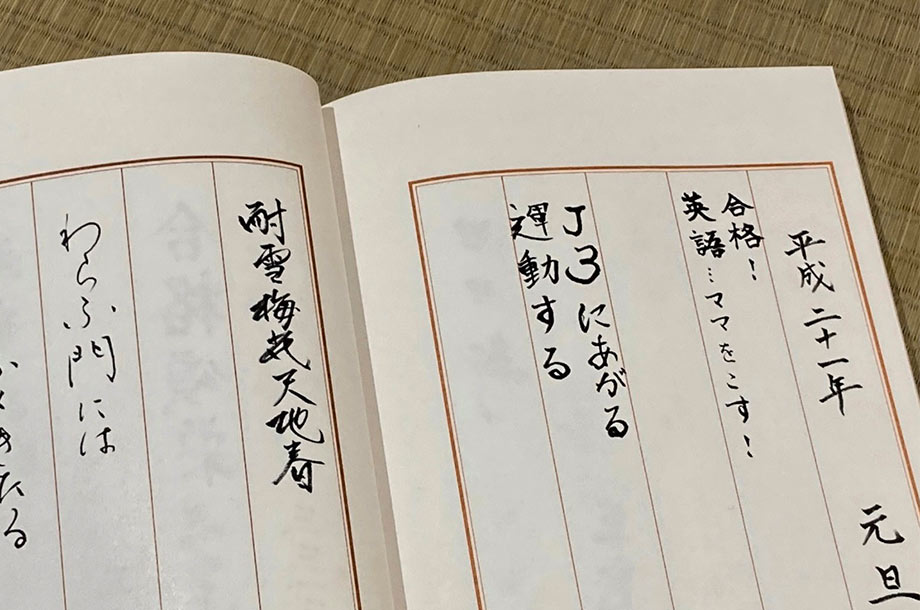 平成二十一年 元旦
合格！
英語…ママをこす！
J3にあがる
運動する
耐雪梅花天地春
わらふ門には
ふくきたる